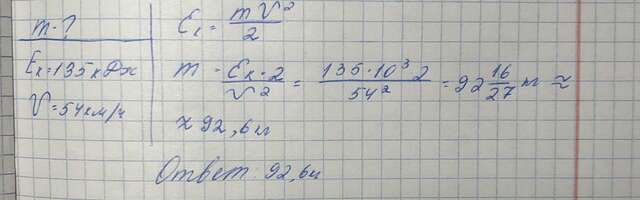 m - ?
Eк = 135 кДж
V = 54 км/ч
Eк = mV²/2
m = Eк·2/V² = 135·10³ 2/54² = 92 16/27 кг ≈
≈ 92,6 кг
Ответ: 92,6 кг